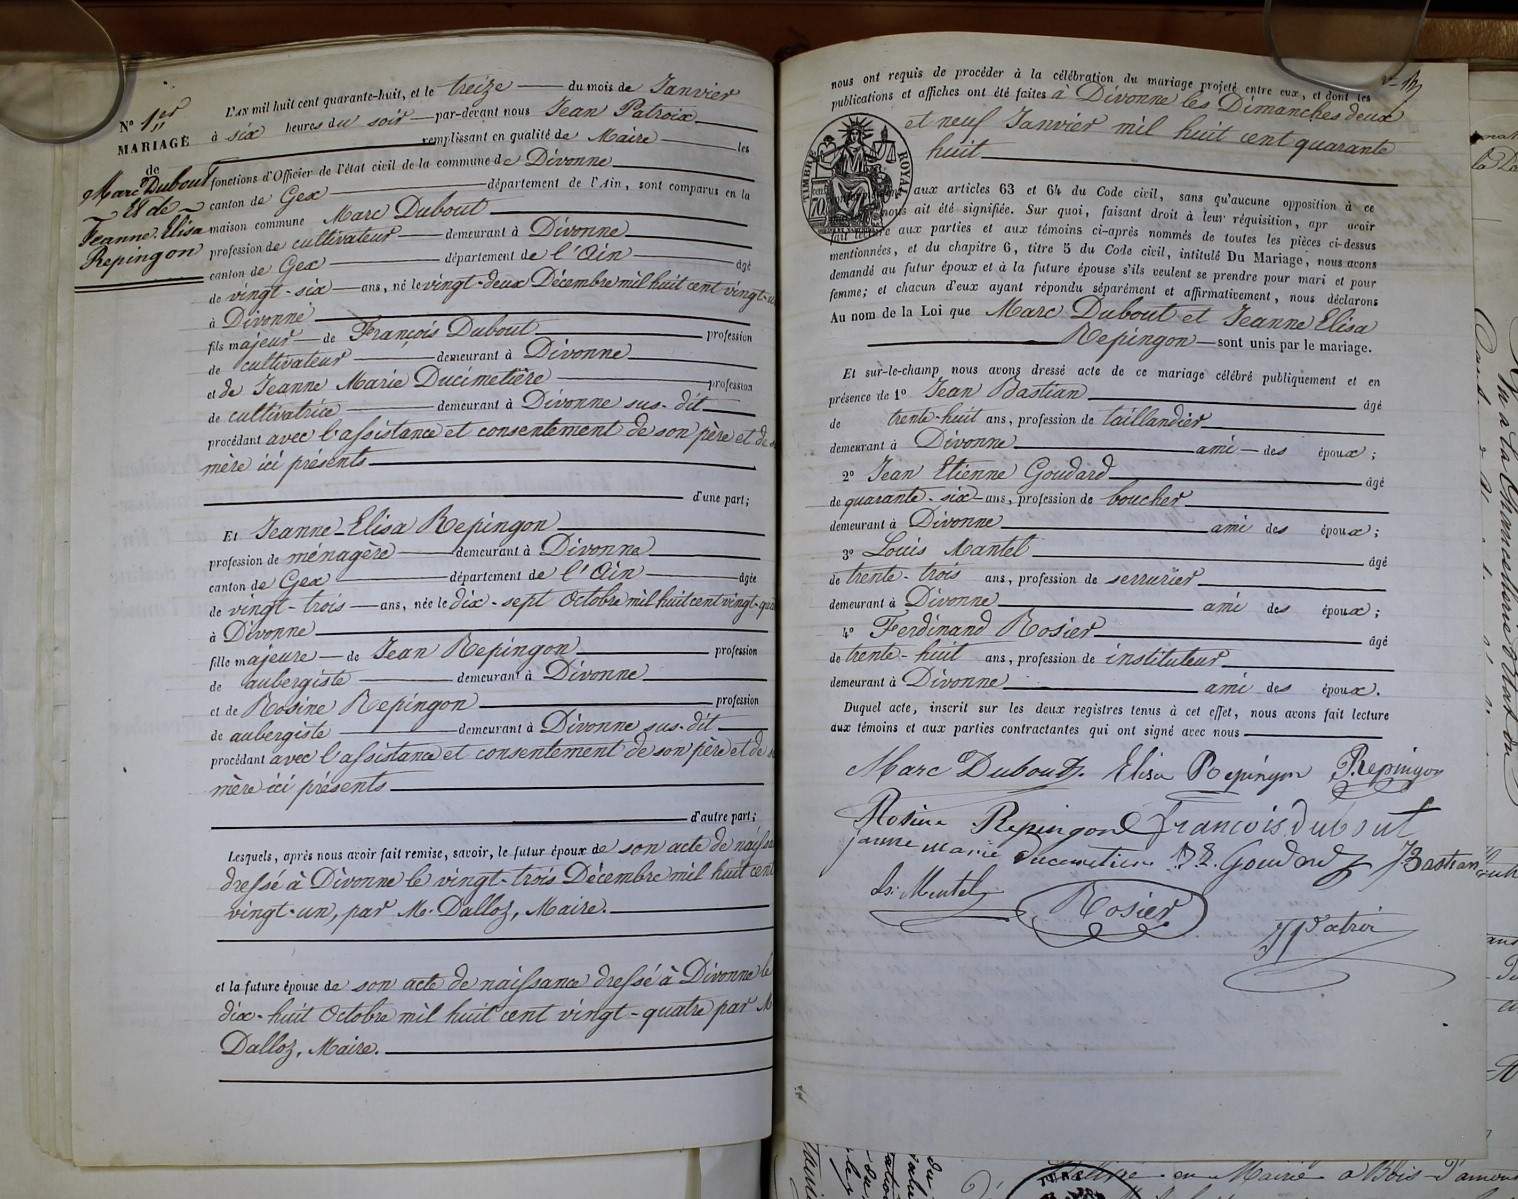 N° 1er
MARIAGE
de
Marc Dubout
et de
Jeanne Elisa
Repingon
L'AN mil huit cent quarante-huit, et le treize du mois de Janvier
à six heures du soir par-devant nous Jean Patroix
remplissant en qualité de Maire les
fonctions d'Officier de l'état civil de la commune de Divonne
canton de Gex département de l'Ain, sont comparus en la
maison commune Marc Dubout
profession de cultivateur demeurant à Divonne
canton de Gex département de l'Ain âgé
de vingt-six ans, né le vingt-deux Décembre mil huit cent vingt-u
à Divonne
fils majeur de François Dubout profession
de cultivateur demeurant à Divonne
et de Jeanne Marie Ducimetière profession
de cultivatrice demeurant à Divonne sus-dit
procédant avec l'assistance et consentement de son père et de s
mère ici présents
d'une part;
Et Jeanne-Elisa Repingon
profession de ménagère demeurant à Divonne
canton de Gex département de l'Ain âgée
de vingt-trois ans, née le dix-sept Octobre mil huit cent vingt-qua
à Divonne
fille majeure de Jean Repingon profession
de aubergiste demeurant à Divonne
et de Rosine Repingon profession
de aubergiste demeurant à Divonne sus-dit
procédant avec l'assistance et consentement de son père et de s
mère ici présents
d'autre part;
Lesquels, après nous avoir fait remise, savoir, le futur époux de son acte de naissa
dressé à Divonne le vingt-trois Décembre mil huit cent
vingt-un, par M. Dalloz, Maire.
et la future épouse de son acte de naissance dressé à Divonne le
dix-huit Octobre mil huit cent vingt-quatre par M
Dalloz, Maire.
nous ont requis de procéder à la célébration du mariage projeté entre eux, et dont les
publications et affiches ont été faites à Divonne les Dimanches deux
et neuf Janvier mil huit cent quarante
huit
TIMBRE ROYAL
70
aux articles 63 et 64 du Code civil, sans qu'aucune opposition à ce
nous ait été signifiée. Sur quoi, faisant droit à leur réquisition, apr avoir
fait lecture aux parties et aux témoins ci-après nommés de toutes les pièces ci-dessus
mentionnées, et du chapitre 6, titre 5 du Code civil, intitulé Du Mariage, nous avons
demandé au futur époux et à la future épouse s'ils veulent se prendre pour mari et pour
femme; et chacun d'eux ayant répondu séparément et affirmativement, nous déclarons
Au nom de la Loi que Marc Dubout et Jeanne Elisa
Repingon sont unis par le mariage.
Et sur-le-champ nous avons dressé acte de ce mariage célébré publiquement et en
présence de 1° Jean Bastian âgé
de trente-huit ans, profession de taillandier
demeurant à Divonne ami des époux;
2° Jean Etienne Goudard âgé
de quarante-six ans, profession de boucher
demeurant à Divonne ami des époux;
3° Louis Mantel âgé
de trente-trois ans, profession de serrurier
demeurant à Divonne ami des époux;
4° Ferdinand Rosier âgé
de trente-huit ans, profession de instituteur
demeurant à Divonne ami des époux.
Duquel acte, inscrit sur les deux registres tenus à cet effet, nous avons fait lecture
aux témoins et aux parties contractantes qui ont signé avec nous
Marc Dubout. Elisa Repingon Repingon
Rosine Repingon François dubout
janne marie ducimetiere Goudard Bastian
Ls. Mantel Rosier